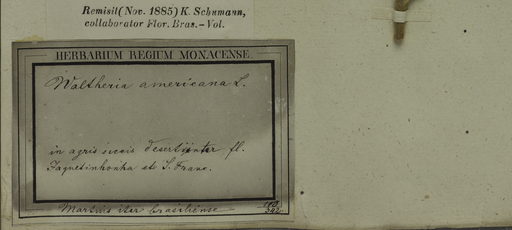 Remisit (Nov. 1885) K. Schumann,
collaborator Flor. Bras. – Vol.
HERBARIUM REGIUM MONACENSE
Waltheria americana L.
in agris siccis deserti inter fl.
Jaquetinhonha et S. Franc.
Martius iter brasiliense